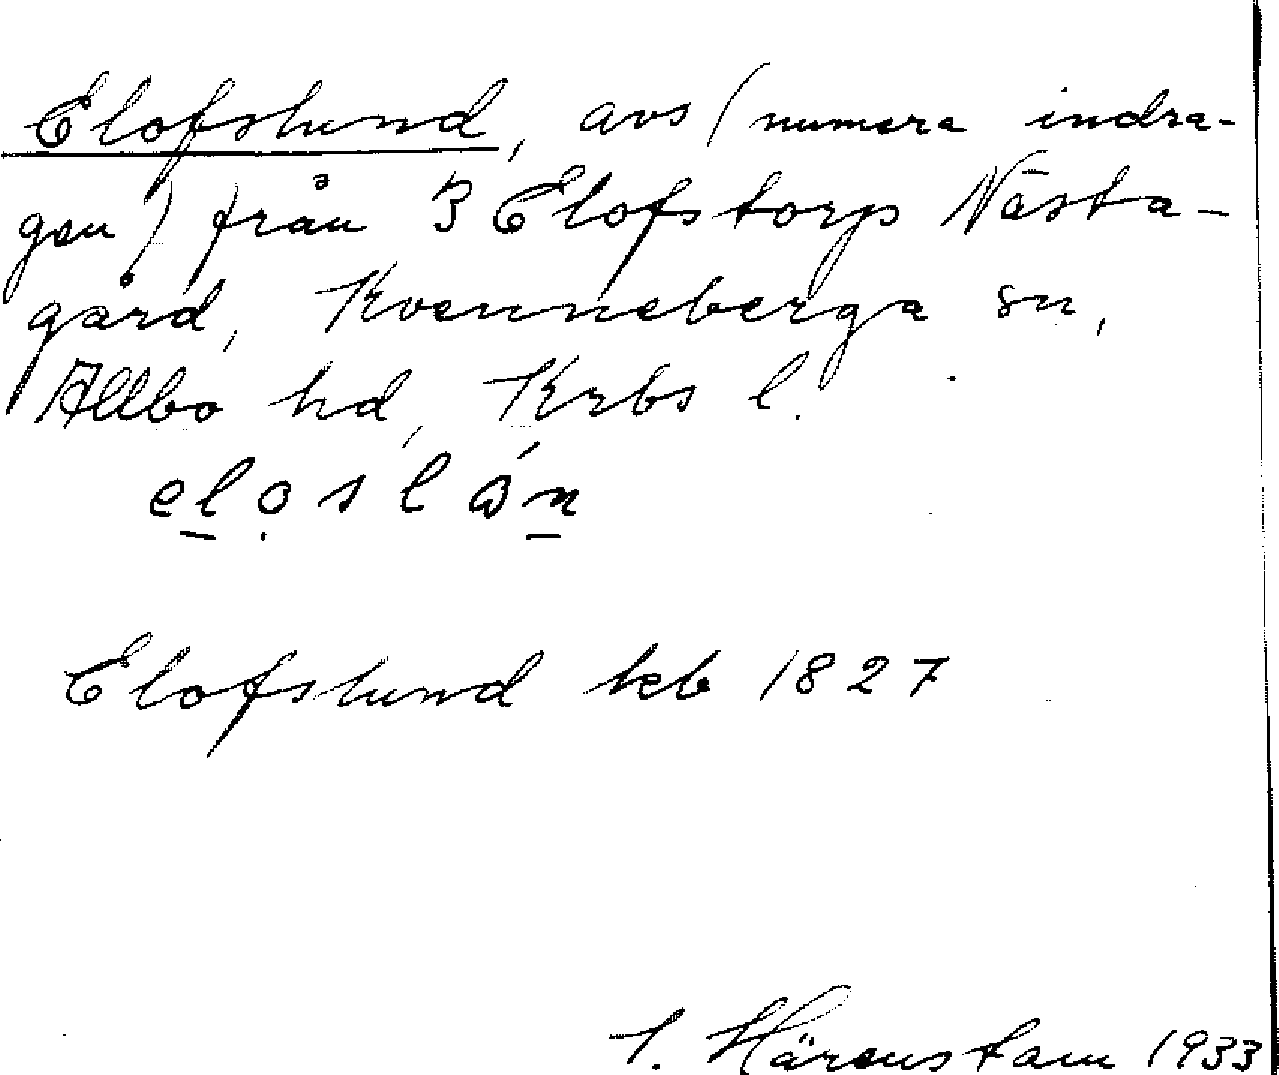 Elofslund, avs (numera indra-
gen) från 3 Elofstorp Västa-
gård, Kvenneberga sn,
Allbo hd, Krbs l.
Elofslund kb 1827
Härenstam 1933